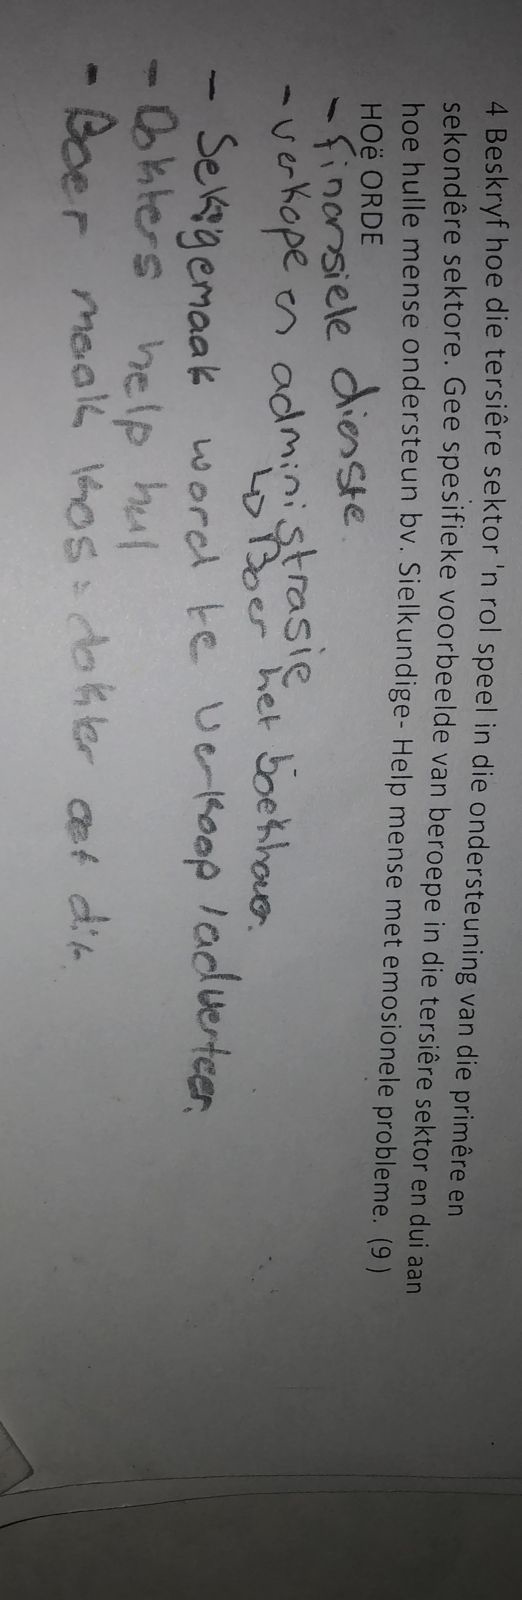 4 Beskryf hoe die tersiêre sektor 'n rol speel in die ondersteuning van die primêre en
sekondêre sektore. Gee spesifieke voorbeelde van beroepe in die tersiêre sektor en dui aan
hoe hulle mense ondersteun bv. Sielkundige- Help mense met emosionele probleme. (9)
HOë ORDE
- finansiele dienste.
- verkope en administrasie
↳ Boer het boekhouer.
- Sek: gemaak word te verkoop / adverteer.
- Dokters help hul
- Boer maak kos = dokter eet dit.